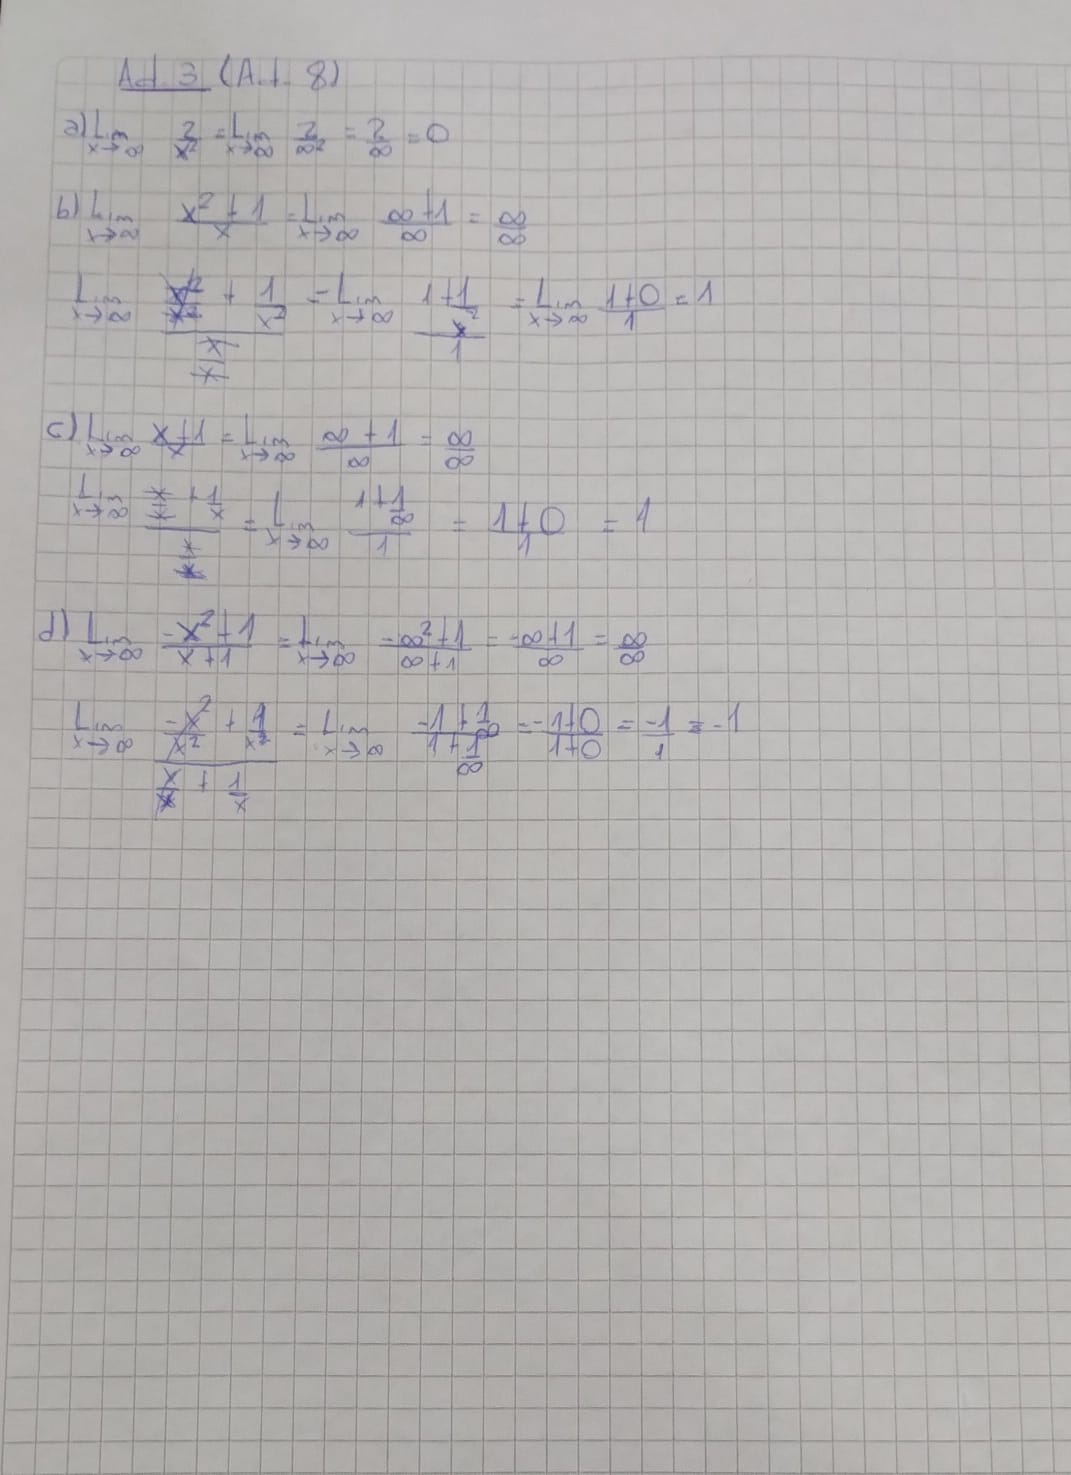 Act. 3 (Act. 8)
a) Lim x→∞ 2/x² = Lim x→∞ 2/∞² = 2/∞ = 0
b) Lim x→∞ (x² + 1)/x = Lim x→∞ (∞ + 1)/∞ = ∞/∞
Lim x→∞ (x²/x² + 1/x²)/(x/x) = Lim x→∞ (1 + 1/x²)/1 = Lim x→∞ (1+0)/1 = 1
c) Lim x→∞ (x+1)/x = Lim x→∞ (∞ + 1)/∞ = ∞/∞
Lim x→∞ (x/x + 1/x)/(x/x) = Lim x→∞ (1 + 1/∞)/1 = (1+0)/1 = 1
d) Lim x→∞ (-x² + 1)/(x + 1) = Lim x→∞ (-∞² + 1)/(∞ + 1) = (-∞ + 1)/∞ = ∞/∞
Lim x→∞ (-x²/x² + 1/x²)/(x/x + 1/x) = Lim x→∞ (-1 + 1/∞)/(1 + 1/∞) = (-1+0)/(1+0) = -1/1 = -1